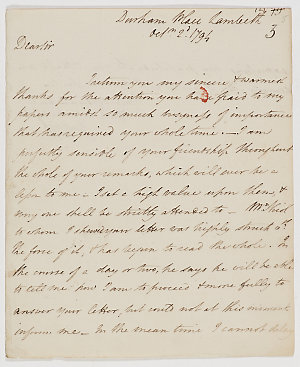 Durham Place Lambeth
Octr. 2d. 1794
3
Dear Sir
I return you my sincere & warmest
thanks for the attention you had paid to my
papers amidst so much business of importance
that has required your whole time. — I am
perfectly sensible of your friendship throughout
the whole of your remarks, which will ever be a
lesson to me — I set a high value upon them, &
every one shall be strictly attended to — Mr.
to whom I shew your letter was highly struck with
the force of it, & has begun to read the whole. In
the course of a day or two, he says he will be able
to tell me how I am to proceed & more fully to
answer your letter, but could not at this moment
inform me — In the mean time I cannot delay